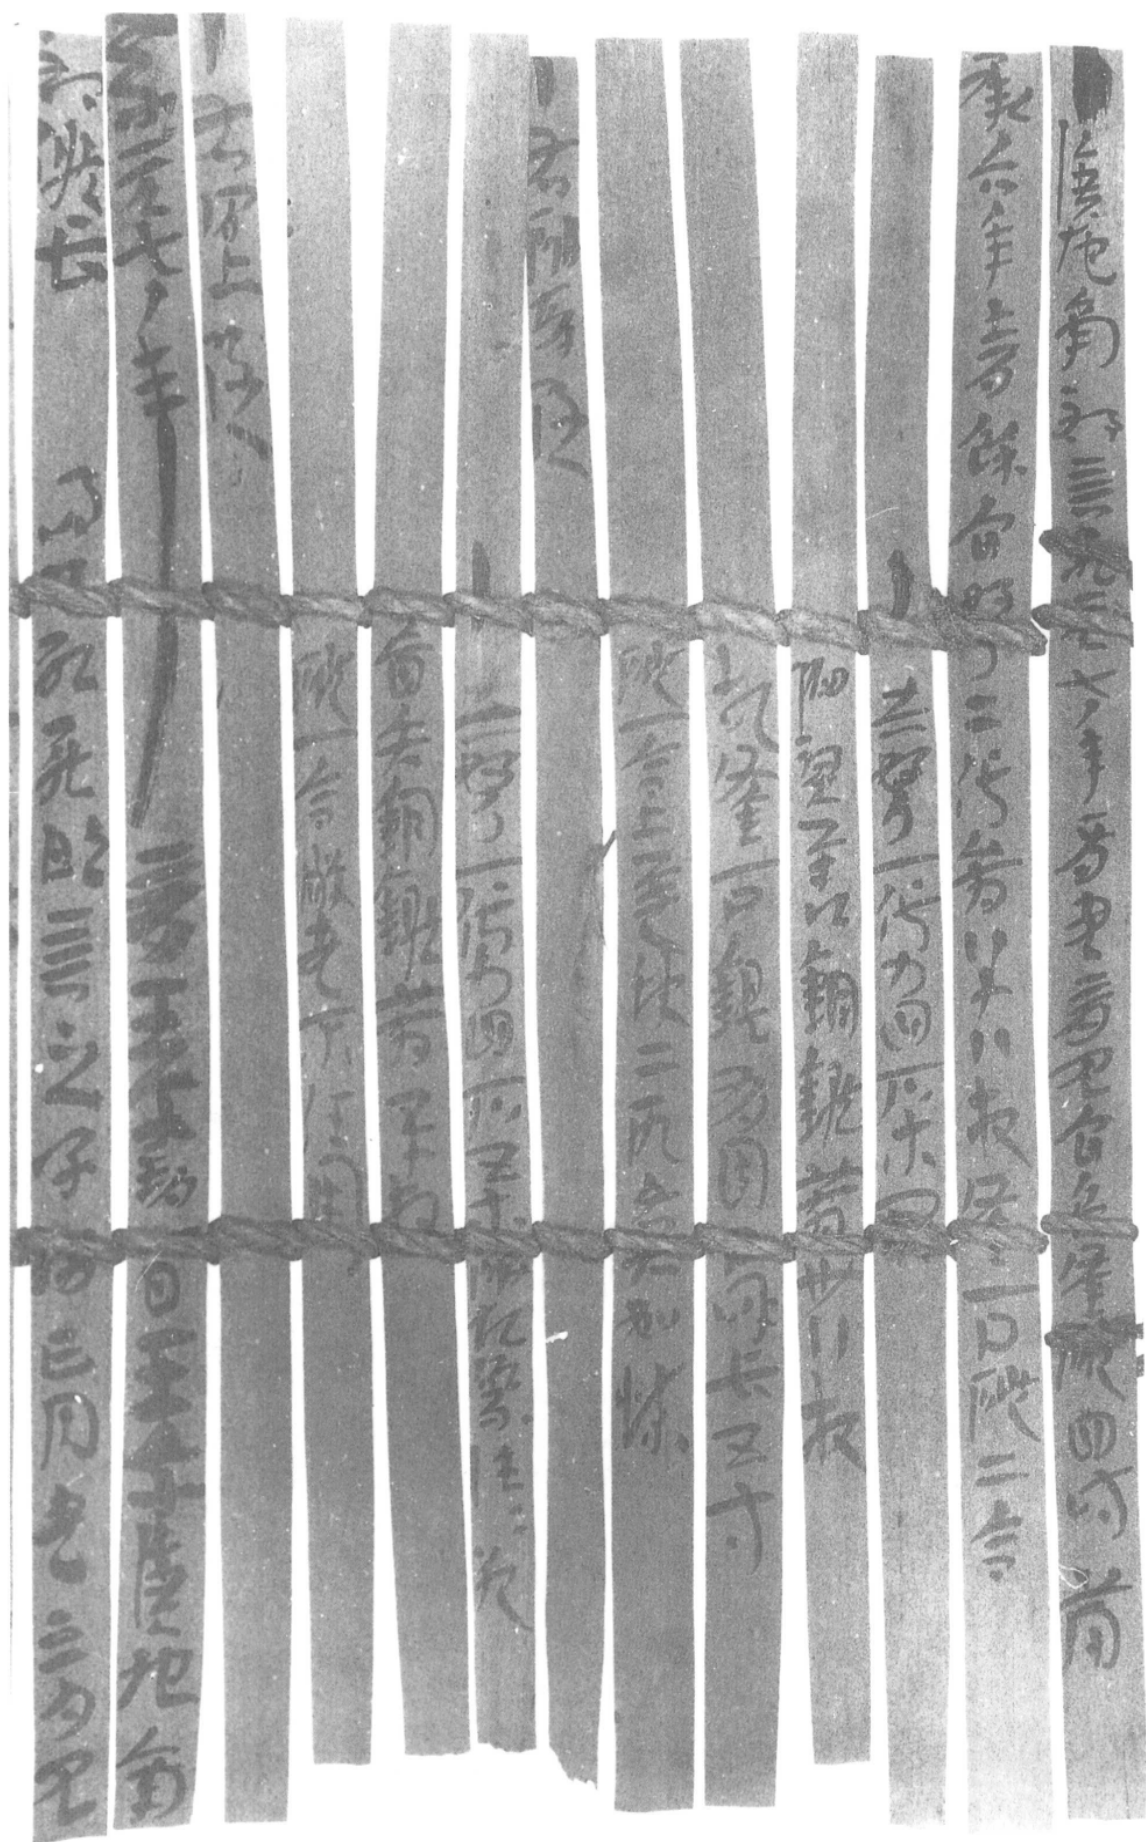 ●廣地南部言永元七年正月盡三月見官兵釜磑四時簿
承六年十二月餘官弩二張箭八十八枚釜一口磑二合
●赤弩一張力四石木關
陷堅羊頭銅鍭箭卅八枚
故釜一口鍉有固口呼長五寸
磑一合上蓋缺二所各大如疎
●右破胡隧
●赤弩一張力四石五木破起繳往往絶
盲矢銅鍭箭五十枚
磑一合敝盡不任用
●右河上隧
永元七年三月壬午朔一日壬午廣地南
部候長 叩頭死罪敢言之謹移正月盡三月見